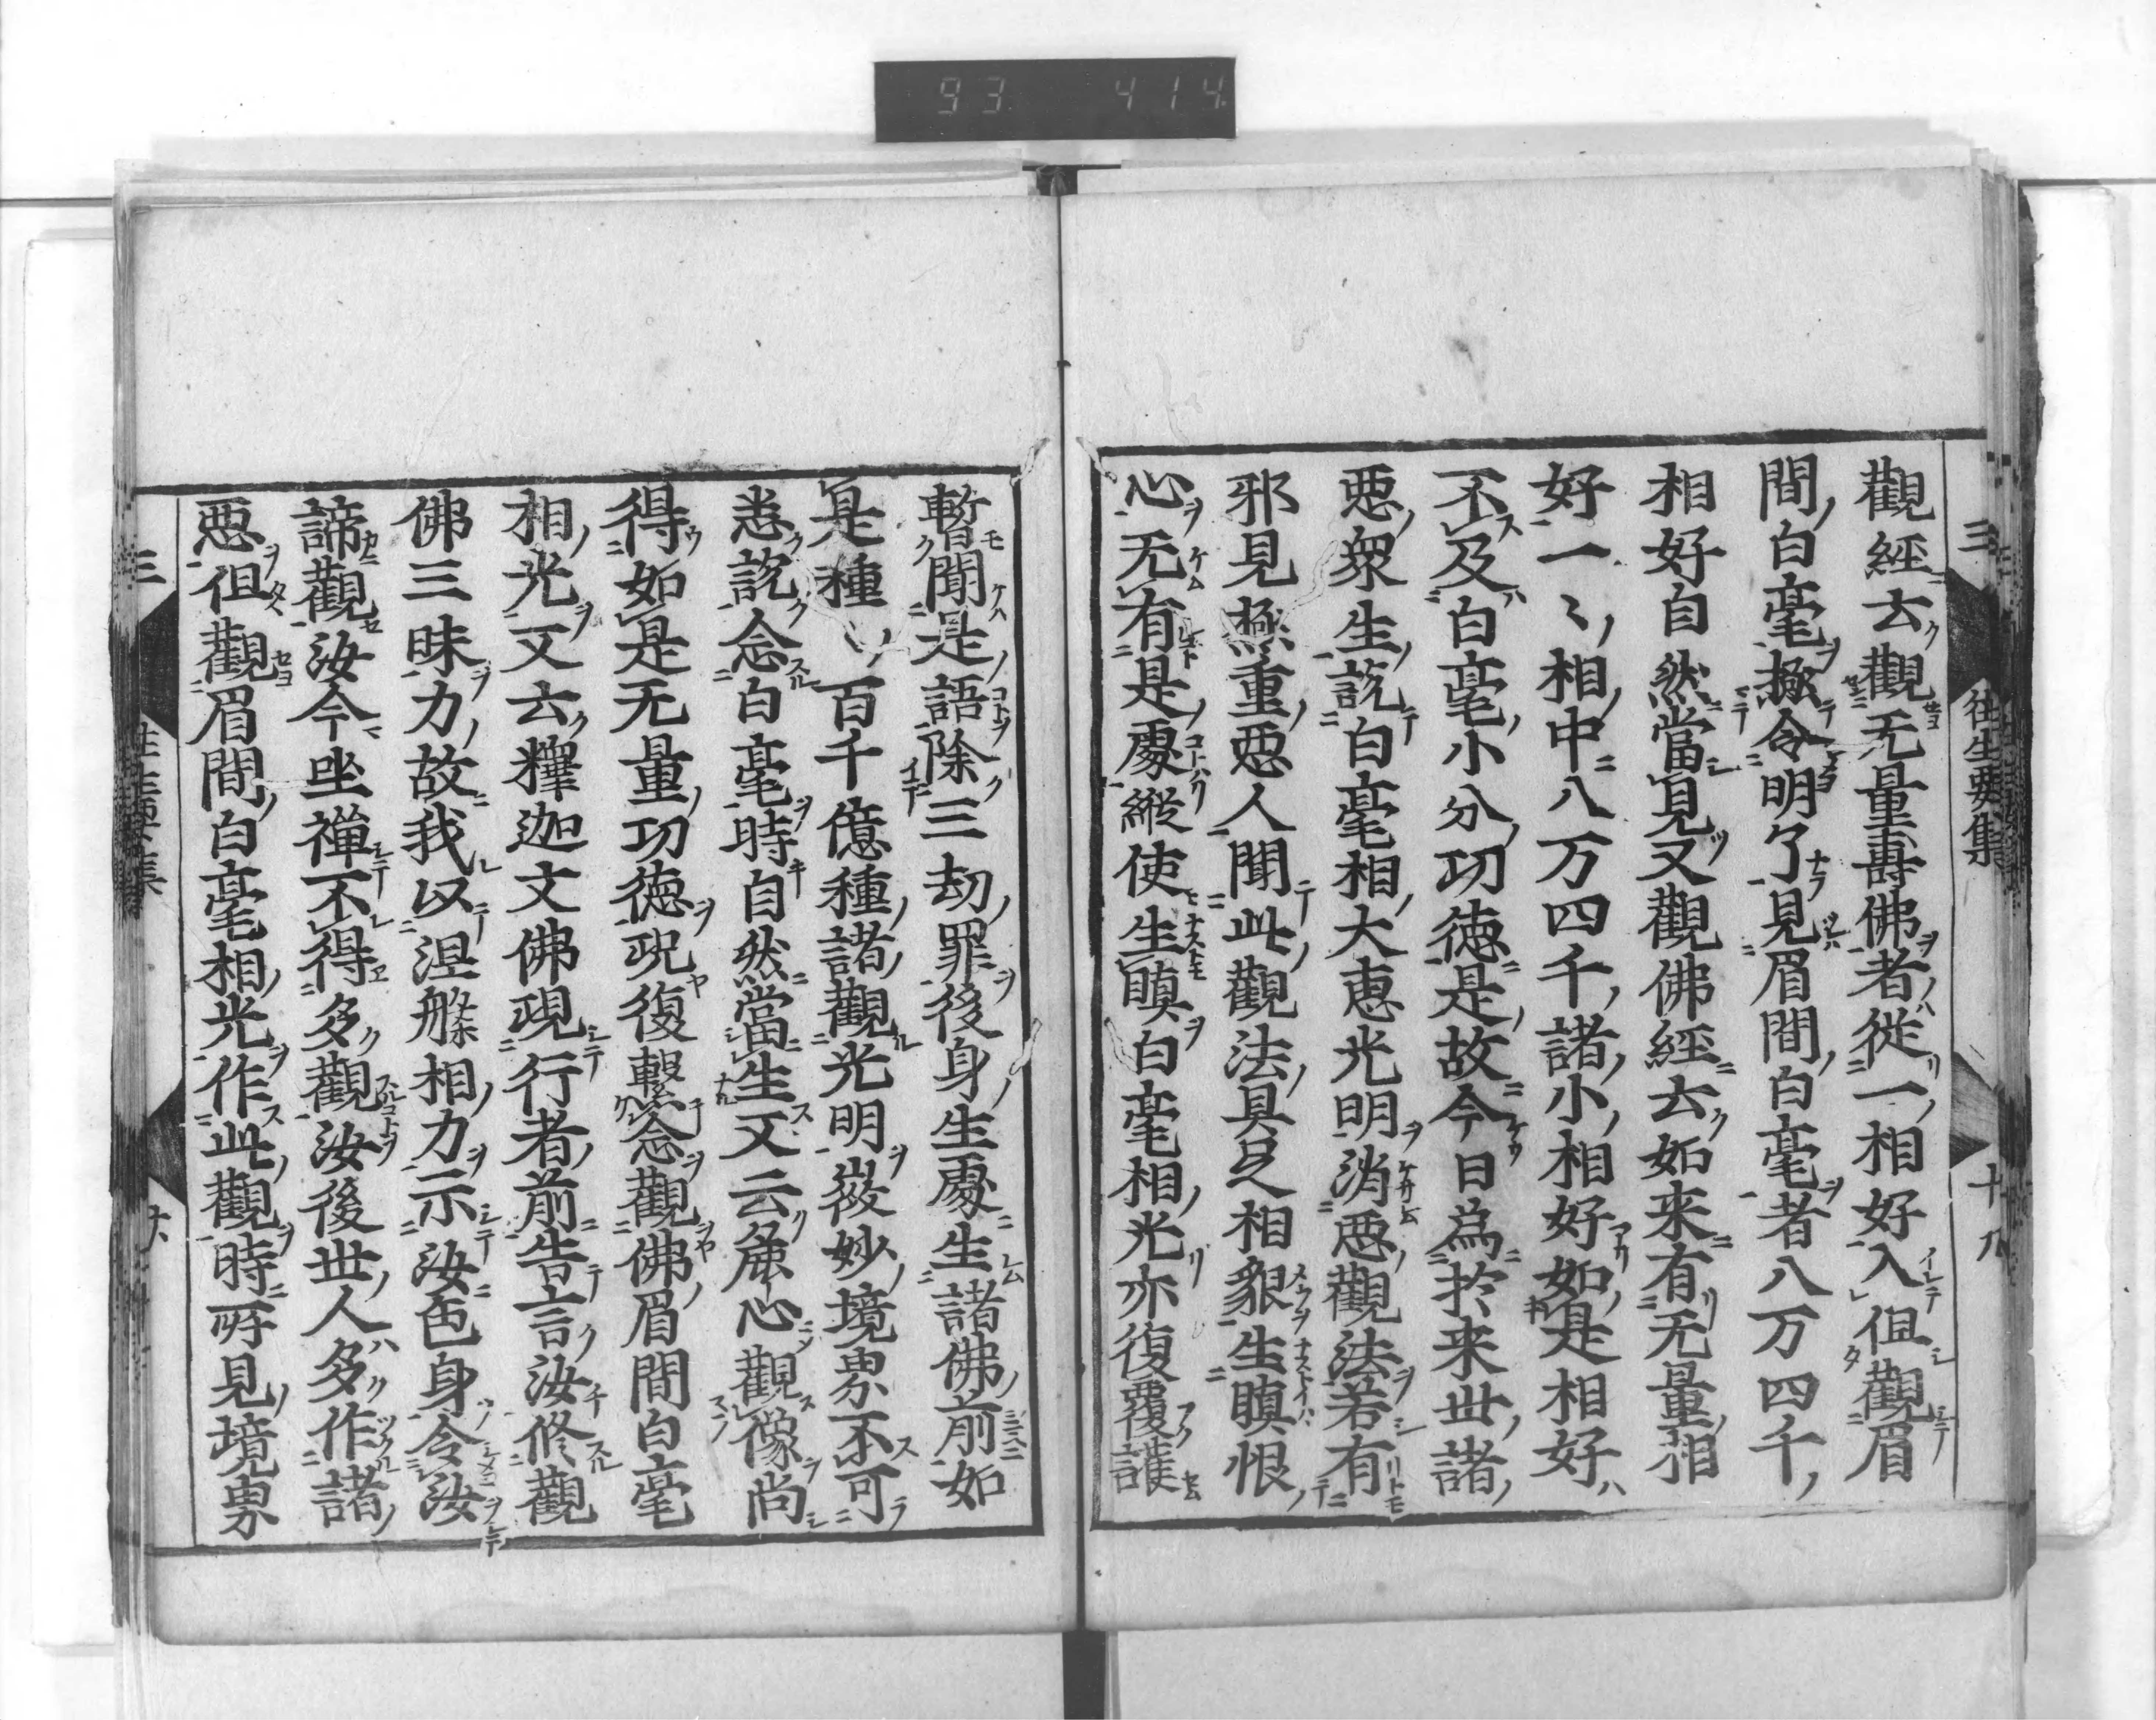 93 414
三 往生要集 十八
觀經云觀无量壽佛者從一相好入但觀眉
間白毫極令明了見眉間白毫者八万四千
相好自然當見又觀佛經云如来有无量相
好一〻相中八万四千諸小相好如是相好
不及白毫小分功徳是故今日為於来世諸
悪衆生説白毫相大恵光明消悪觀法若有
邪見極重悪人聞此觀法具足相貌生瞋恨
心无有是處縦使生瞋白毫相光亦復覆護
暫聞是語除三劫罪後身生處生諸佛前如
是種〻百千億種諸觀光明微妙境界不可
悉説念白毫時自然當生又云麁心觀像尚
得如是无量功徳况復繫念觀佛眉間白毫
相光又云釋迦文佛現行者前告言汝修觀
佛三昧力故我以涅槃相力示汝色身令汝
諦觀汝今坐禪不得多觀汝後世人多作諸
悪但觀眉間白毫相光作此觀時所見境界
三 往生要集